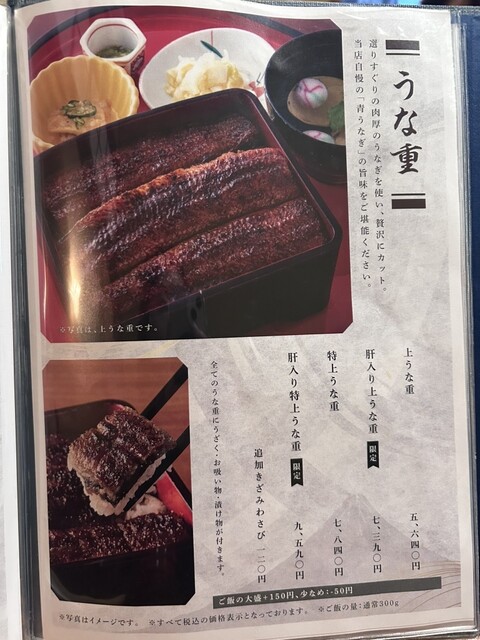 うな重
選りすぐりの肉厚のうなぎを使い、贅沢にカット。
当店自慢の「青うなぎ」の旨味をご堪能ください。
※写真は、上うな重です。
上うな重 五、六四〇円
肝入り上うな重 限定 七、三九〇円
特上うな重 七、八四〇円
肝入り特上うな重 限定 九、五九〇円
追加きざみわさび 一二〇円
全てのうな重にうざく・お吸い物・漬け物が付きます。
ご飯の大盛+150円、少なめ:-50円
※写真はイメージです。 ※すべて税込の価格表示となっております。 ※ご飯の量:通常300g